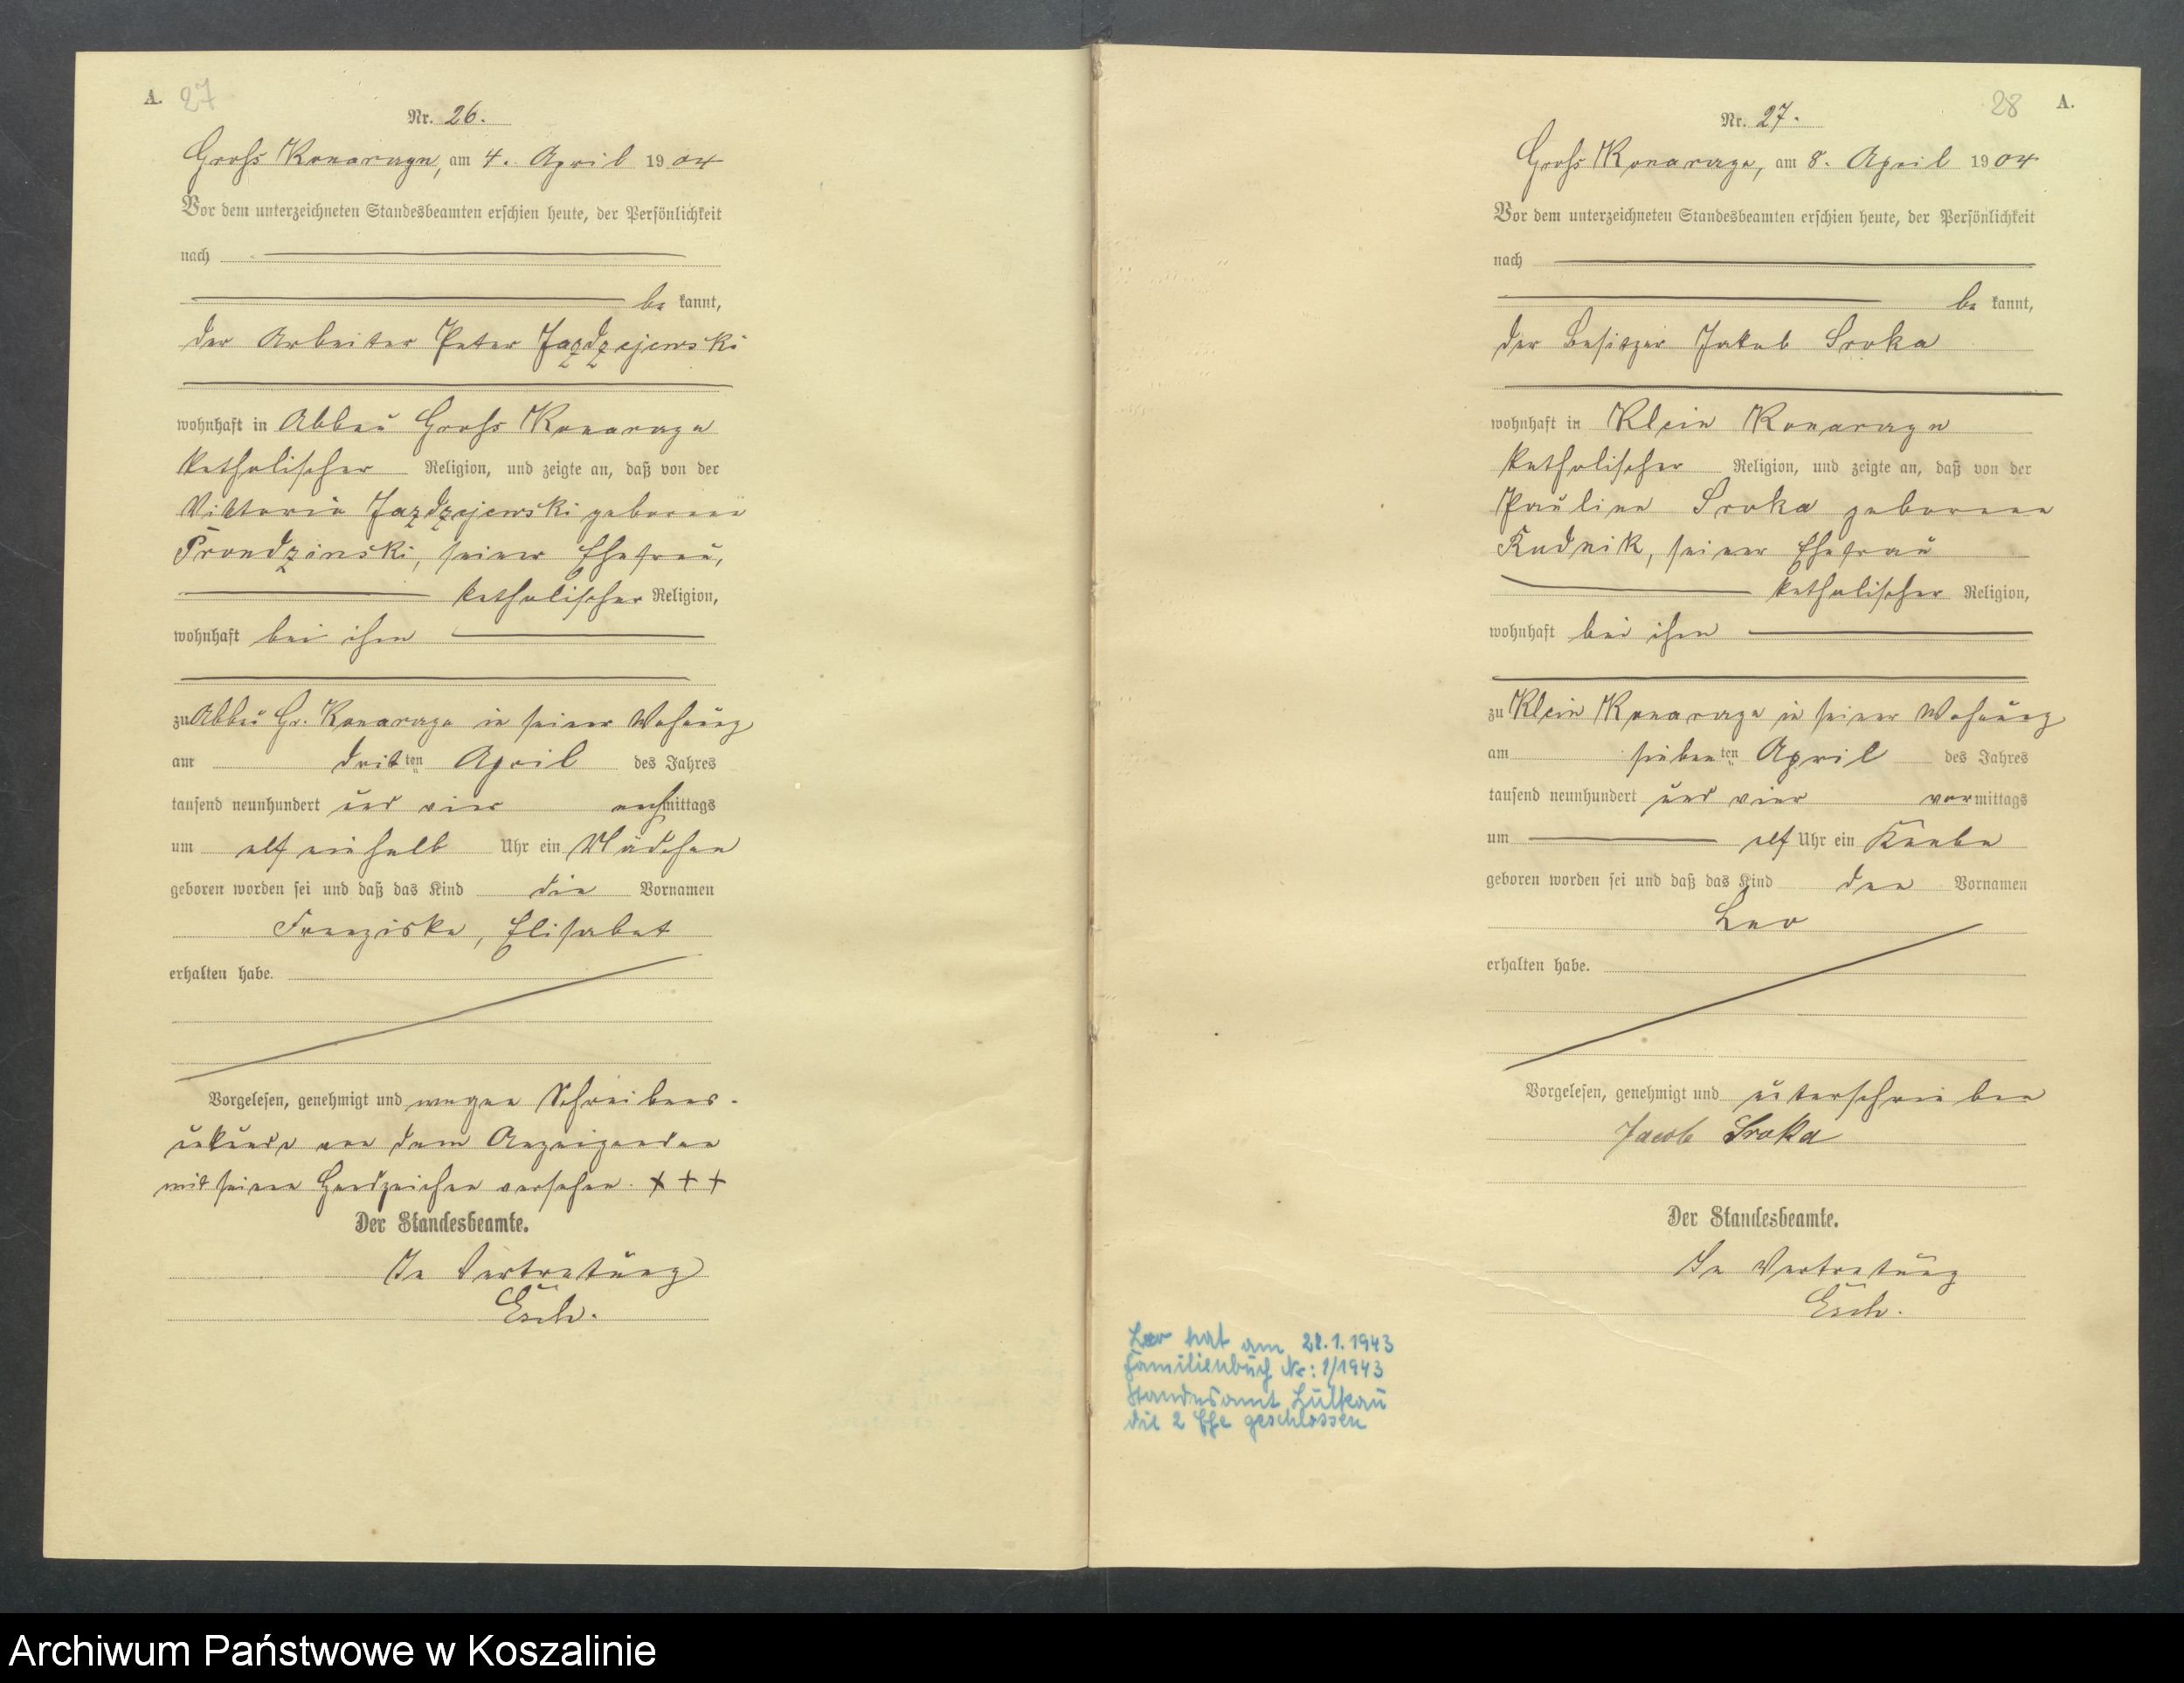 A. 27
Nr. 26.
Gross Konarczyn, am 4. April 1904
Vor dem unterzeichneten Standesbeamten erschien heute, der Persönlichkeit
nach
be kannt,
der Arbeiter Peter Jazdzejewski
wohnhaft in Abbau Gross Konarczyn
katholischer Religion, und zeigte an, daß von der
Viktoria Jazdzejewski geborene
Prondzinski, seiner Ehefrau,
katholischer Religion,
wohnhaft bei ihm
zu Abbau Gr. Konarczyn in seiner Wohnung
am dritten April des Jahres
tausend neunhundert und vier nachmittags
um elf einhalb Uhr ein Mädchen
geboren worden sei und daß das Kind die Vornamen
Franziska, Elisabet
erhalten habe.
Vorgelesen, genehmigt und wegen Schreibens-
unkunde von dem Anzeigenden
mit seinen Handzeichen versehen. +++
Der Standesbeamte.
In Vertretung
Esch.
28 A.
Nr. 27.
Gross Konarczyn, am 8. April 1904
Vor dem unterzeichneten Standesbeamten erschien heute, der Persönlichkeit
nach
be kannt,
der Besitzer Jakob Sroka
wohnhaft in Klein Konarczyn
katholischer Religion, und zeigte an, daß von der
Pauline Sroka geborene
Rudnik, seiner Ehefrau
katholischer Religion,
wohnhaft bei ihm
zu Klein Konarczyn in seiner Wohnung
am siebenten April des Jahres
tausend neunhundert und vier vormittags
um elf Uhr ein Knabe
geboren worden sei und daß das Kind den Vornamen
Leo
erhalten habe.
Vorgelesen, genehmigt und unterschrieben
Jacob Sroka
Der Standesbeamte.
In Vertretung
Esch.
Leo hat am 1.1943
Familienbuch Nr: 1/1943
Standesamt
die 2 Ehe geschlossen
Archiwum Państwowe w Koszalinie